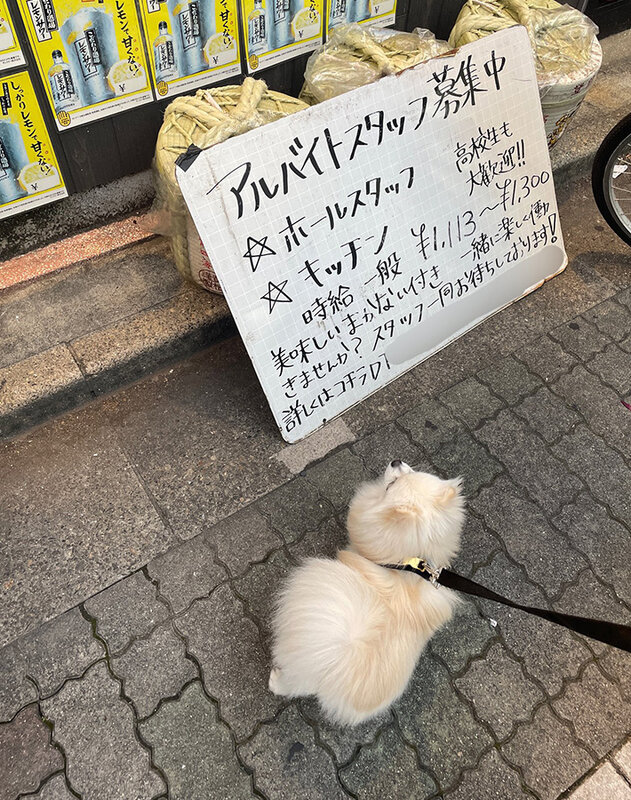 しっかりレモンで甘くない。
こだわり酒場
レモンサワー
アルバイトスタッフ募集中
☆ホールスタッフ
高校生も
大歓迎!!
☆キッチン
時給 一般 ¥1,113~¥1,300
美味しいまかない付き 一緒に楽しく働
きませんか? スタッフ一同お待ちしております!
詳しくはコチラ